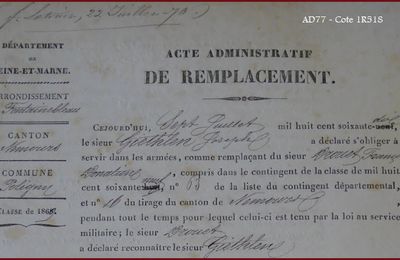 AD77 - Cote 1R51S
22 Juillet 70
DÉPARTEMENT
EINE-ET-MARNE.
RRONDISSEMENT
Fontainebleau
CANTON
Nemours
COMMUNE
Poligny
CLASSE DE 1869.
ACTE ADMINISTRATIF
DE REMPLACEMENT.
CEJOURD'HUI, Sept Juillet mil huit cent soixante-dix
le sieur Giethlen Joseph a déclaré s'obliger à
servir dans les armées, comme remplaçant du sieur Drouet
compris dans le contingent de la classe de mil huit
cent soixante-neuf, n° 83 de la liste du contingent départemental,
et n° 16 du tirage du canton de Nemours
pendant tout le temps pour lequel celui-ci est tenu par la loi au service
militaire; le sieur Drouet
a déclaré reconnaître le sieur Giethlen